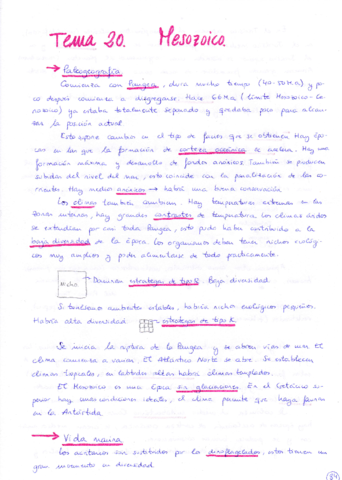 Tema 20. Mesozoico.
→ Paleogeografía.
Comienza con Pangea, dura mucho tiempo (40-50 M.a) y po
co después comienza a disgregarse. Hace 66 M.a (límite Mesozoico-Ce
nozoico) ya estaba totalmente separado y quedaba poco para alcan-
zar la posición actual.
Esto supone cambios en el tipo de facies que se obtendrá. Hay épo-
cas en las que la formación de corteza oceánica se acelera. Hay una
formación máxima y desarrollo de fondos anóxicos. También se producen
subidas del nivel del mar, esto coincide con la paralización de las co-
rrientes. Hay medios anóxicos → habrá una buena conservación.
Los climas también cambian. Hay temperaturas extremas en las
zonas internas, hay grandes contrastes de temperatura. Los climas áridos
se extendían por casi toda Pangea, esto pudo haber contribuido a la
baja diversidad de la época. Los organismos deben tener nichos ecológ-
icos muy amplios y poder alimentarse de todo prácticamente.
Nicho Dominan estrategas de tipo R. Baja diversidad.
Si tenemos ambientes estables, habría nichos ecológicos pequeños.
Habría alta diversidad. estrategas de tipo K.
Se inicia la ruptura de la Pangea y se abren vías de mar. El
clima comienza a variar. El Atlántico Norte se abre. Se establecen
climas tropicales, en latitudes altas habrá climas templados.
El Mesozoico es una época sin glaciaciones. En el Cretácico su-
perior hay unas condiciones ideales, el clima permite que haya fauna
en la Antártida.
→ Vida marina.
Los acritarcos son sustituidos por los dinoflagelados, estos tienen un
gran incremento en diversidad.